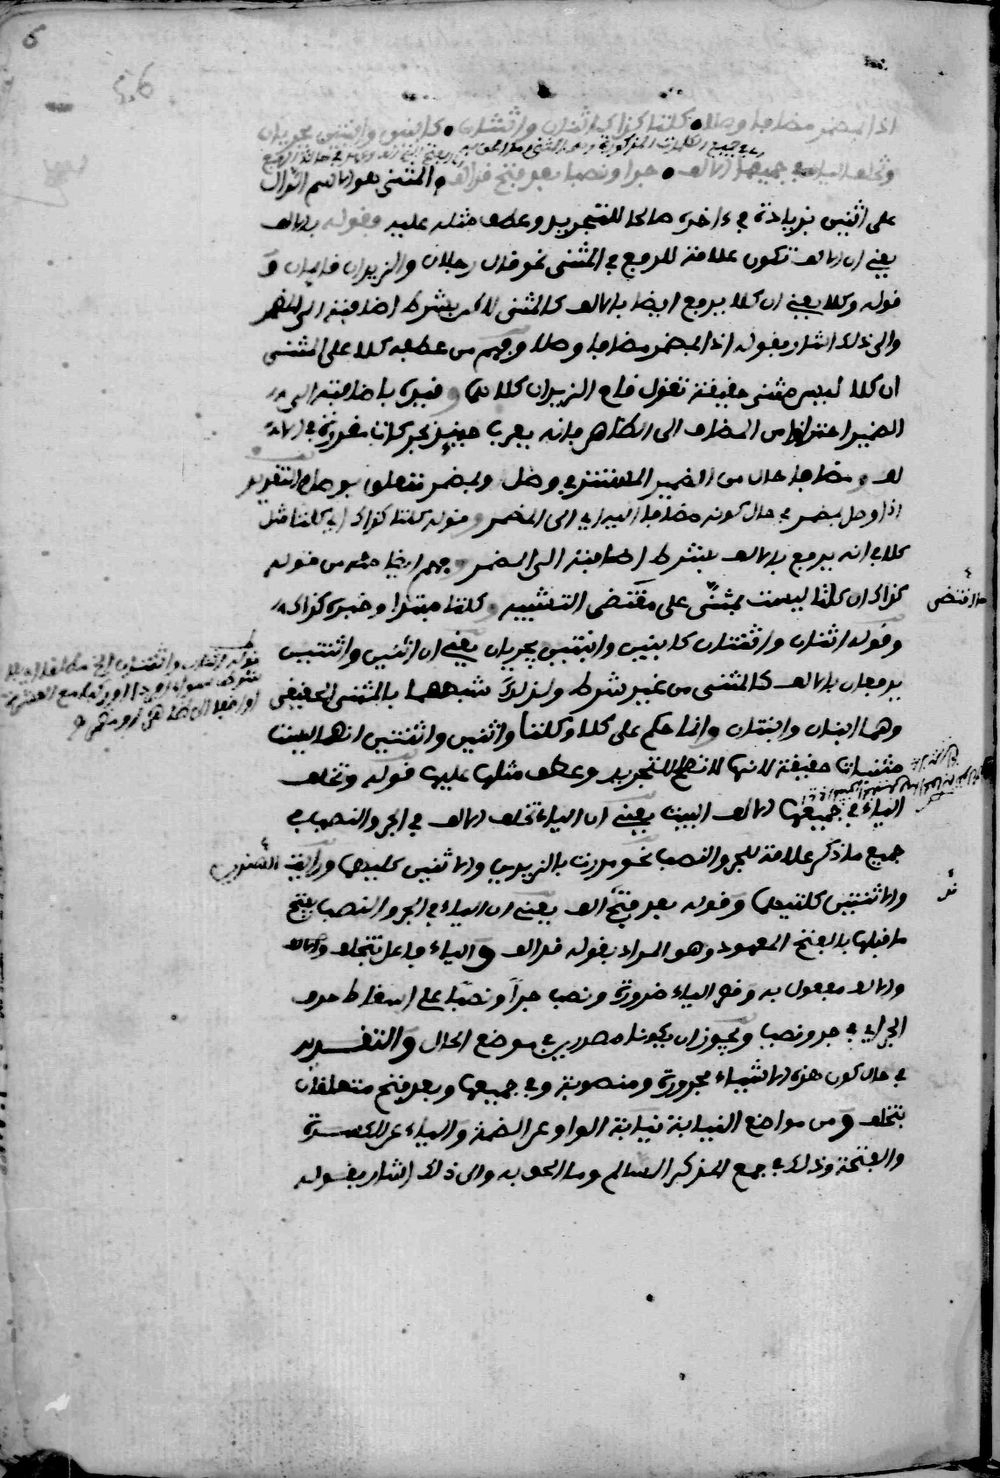 اذا بمضمر مضافا وصلا • كلتا كذاك اثنان واثنتان • كابنين وابنتين يجريان
وتخلف اليا في جميعها الالف • جرا ونصبا بعد فتح قد الف • المثنى هو الاسم الدال
على اثنين بزيادة في ءاخره صالحا للتجريد وعطف مثله عليه وقوله بالالف
يعني ان الالف تكون علامة للرفع في المثنى نحو قال رجلان والزيدان قائمان و
قوله وكلا يعني ان كلا يرفع ايضا بالالف كالمثنى لاكن بشرط اضافته الى المضمر
والى ذلك اشار بقوله اذا بمضمر مضافا وصلا وفهم من عطفه كلا على المثنى
ان كلا ليس مثنى حقيقة تقول قام الزيدان كلاهما وقيده باضافته الى
الضمير احترازا من المضاف الى الظاهر فانه يعرب حينئذ بحركات مقدرة في الا
لف ومضافا حال من الضمير المستتر في وصل وبمضمر متعلق بوصل والتقدير
اذا وصل بمضمر في حال كونه مضافا اليه اي الى المضمر وقوله كلتا كذاك اي كلتا مثل
كلا في انه يرفع بالالف بشرط اضافته الى المضمر وفهم ايضا منه من قوله
كذاك ان كلتا ليست بمثنى على مقتضى التشبيه وكلتا مبتدا وخبره كذاك
وقوله اثنان واثنتان كابنين وابنتين يجريان يعني ان اثنين واثنتين
يرفعان بالالف كالمثنى من غير شرط ولذلك شبههما بالمثنى الحقيقي
وهما ابنان وابنتان وانما حكم على كلا وكلتا واثنين واثنتين انها ليست
مثنيات حقيقة لانها لا تصلح للتجريد وعطف مثلها عليها قوله وتخلف
الياء في جميعها الالف البيت يعني ان الياء تخلف الالف في الجر والنصب في
جميع ما ذكر علامة للجر والنصب نحو مررت بالزيدين والاثنين كليهما ورايت
والاثنتين كلتيهما وقوله بعد فتح الف يعني ان الياء في الجر والنصب يفتح
ما قبلها بالفتح المعهود وهو المراد بقوله قد الف والياء فاعل تخلف
والالف مفعول به وقصر الياء ضرورة ونصب جرا ونصبا على اسقاط حرف
الجر اي في جر ونصب ويجوز ان يكونا مصدرين في موضع الحال والتقدير
في حال كون هذه الاشياء مجرورة ومنصوبة وفي جميعها وبعد فتح متعلقان
بتخلف ومن مواضع النيابة نيابة الواو عن الضمة والياء عن الكسرة
والفتحة وذلك في جمع المذكر السالم وما الحق به والى ذلك اشار بقوله